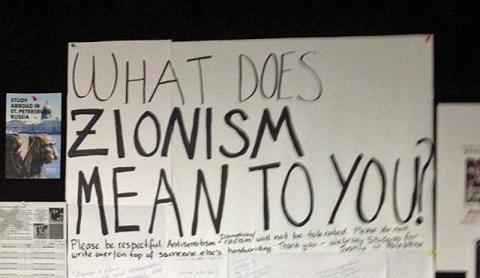 WHAT DOES
ZIONISM
MEAN TO YOU?
Please be respectful. Antisemitism, Islamophobia, racism will not be tolerated. Please do not
write over/on top of someone else's handwriting. Thank you - Wellesley Students for
Justice in Palestine
STUDY
ABROAD IN
ST. PETERSBURG
RUSSIA